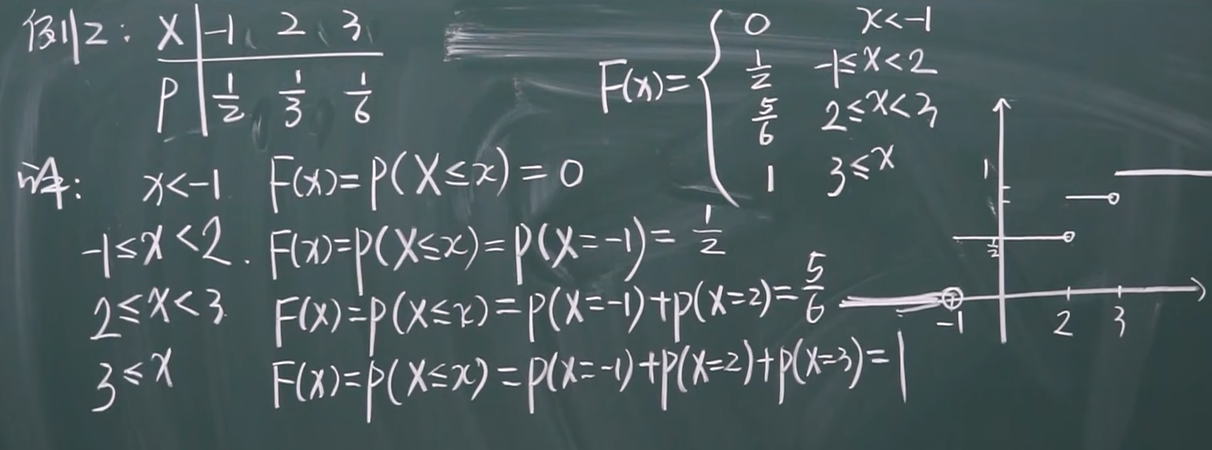 例2: X -1 2 3
P 1/2 1/3 1/6
F(x)= { 0 x<-1
1/2 -1≤x<2
5/6 2≤x<3
1 3≤x
解: x<-1 F(x)=P(X≤x)=0
-1≤x<2. F(x)=P(X≤x)=P(X=-1)=1/2
2≤x<3 F(x)=P(X≤x)=P(X=-1)+P(X=2)=5/6
3≤x F(x)=P(X≤x)=P(X=-1)+P(X=2)+P(X=3)=1
1
1/2
-1 2 3